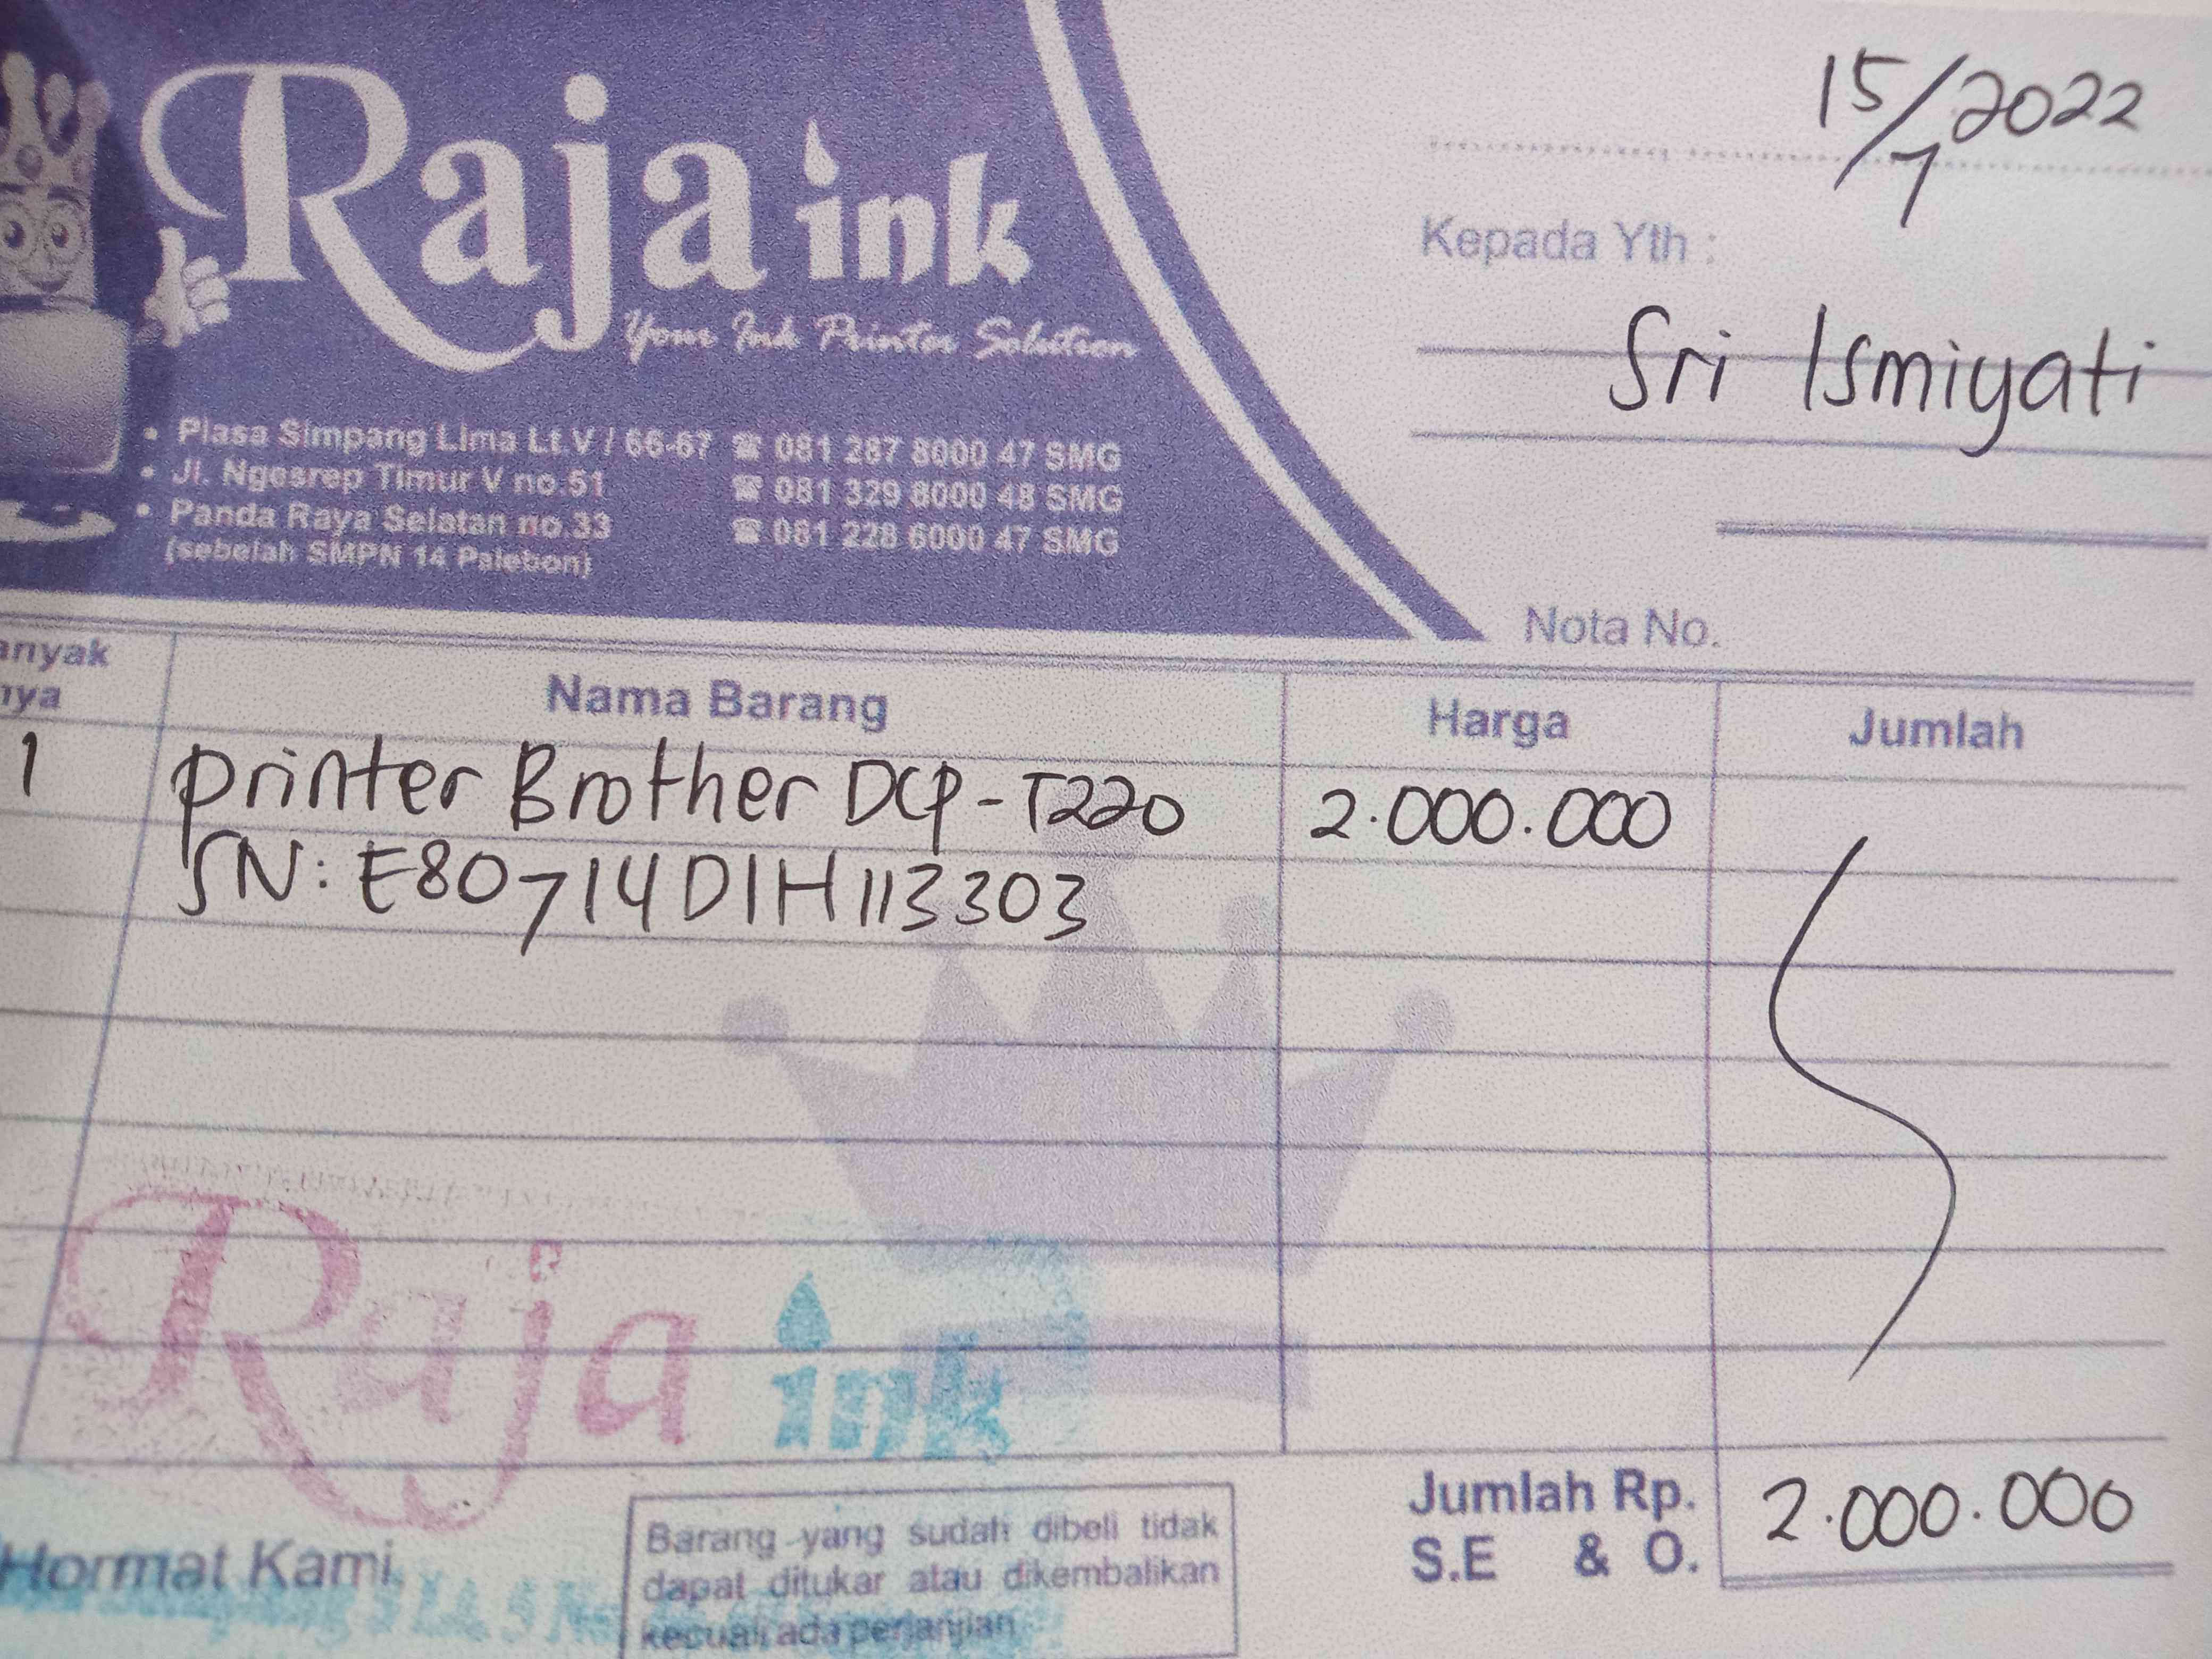 Raja ink
Your Ink Printer Solution
• Plasa Simpang Lima Lt.V / 66-67 ☎ 081 287 8000 47 SMG
• Jl. Ngesrep Timur V no.51 ☎ 081 329 8000 48 SMG
• Panda Raya Selatan no.33 ☎ 081 228 6000 47 SMG
(sebelah SMPN 14 Palebon)
15/7 2022
Kepada Yth :
Sri Ismiyati
Nota No.
anyak
nya
Nama Barang Harga Jumlah
1 printer Brother DCP-T220 2.000.000
SN: E80714D1H113303
Raja ink
Jumlah Rp. 2.000.000
S.E & O.
Hormat Kami,
Barang yang sudah dibeli tidak
dapat ditukar atau dikembalikan
kecuali ada perjanjian